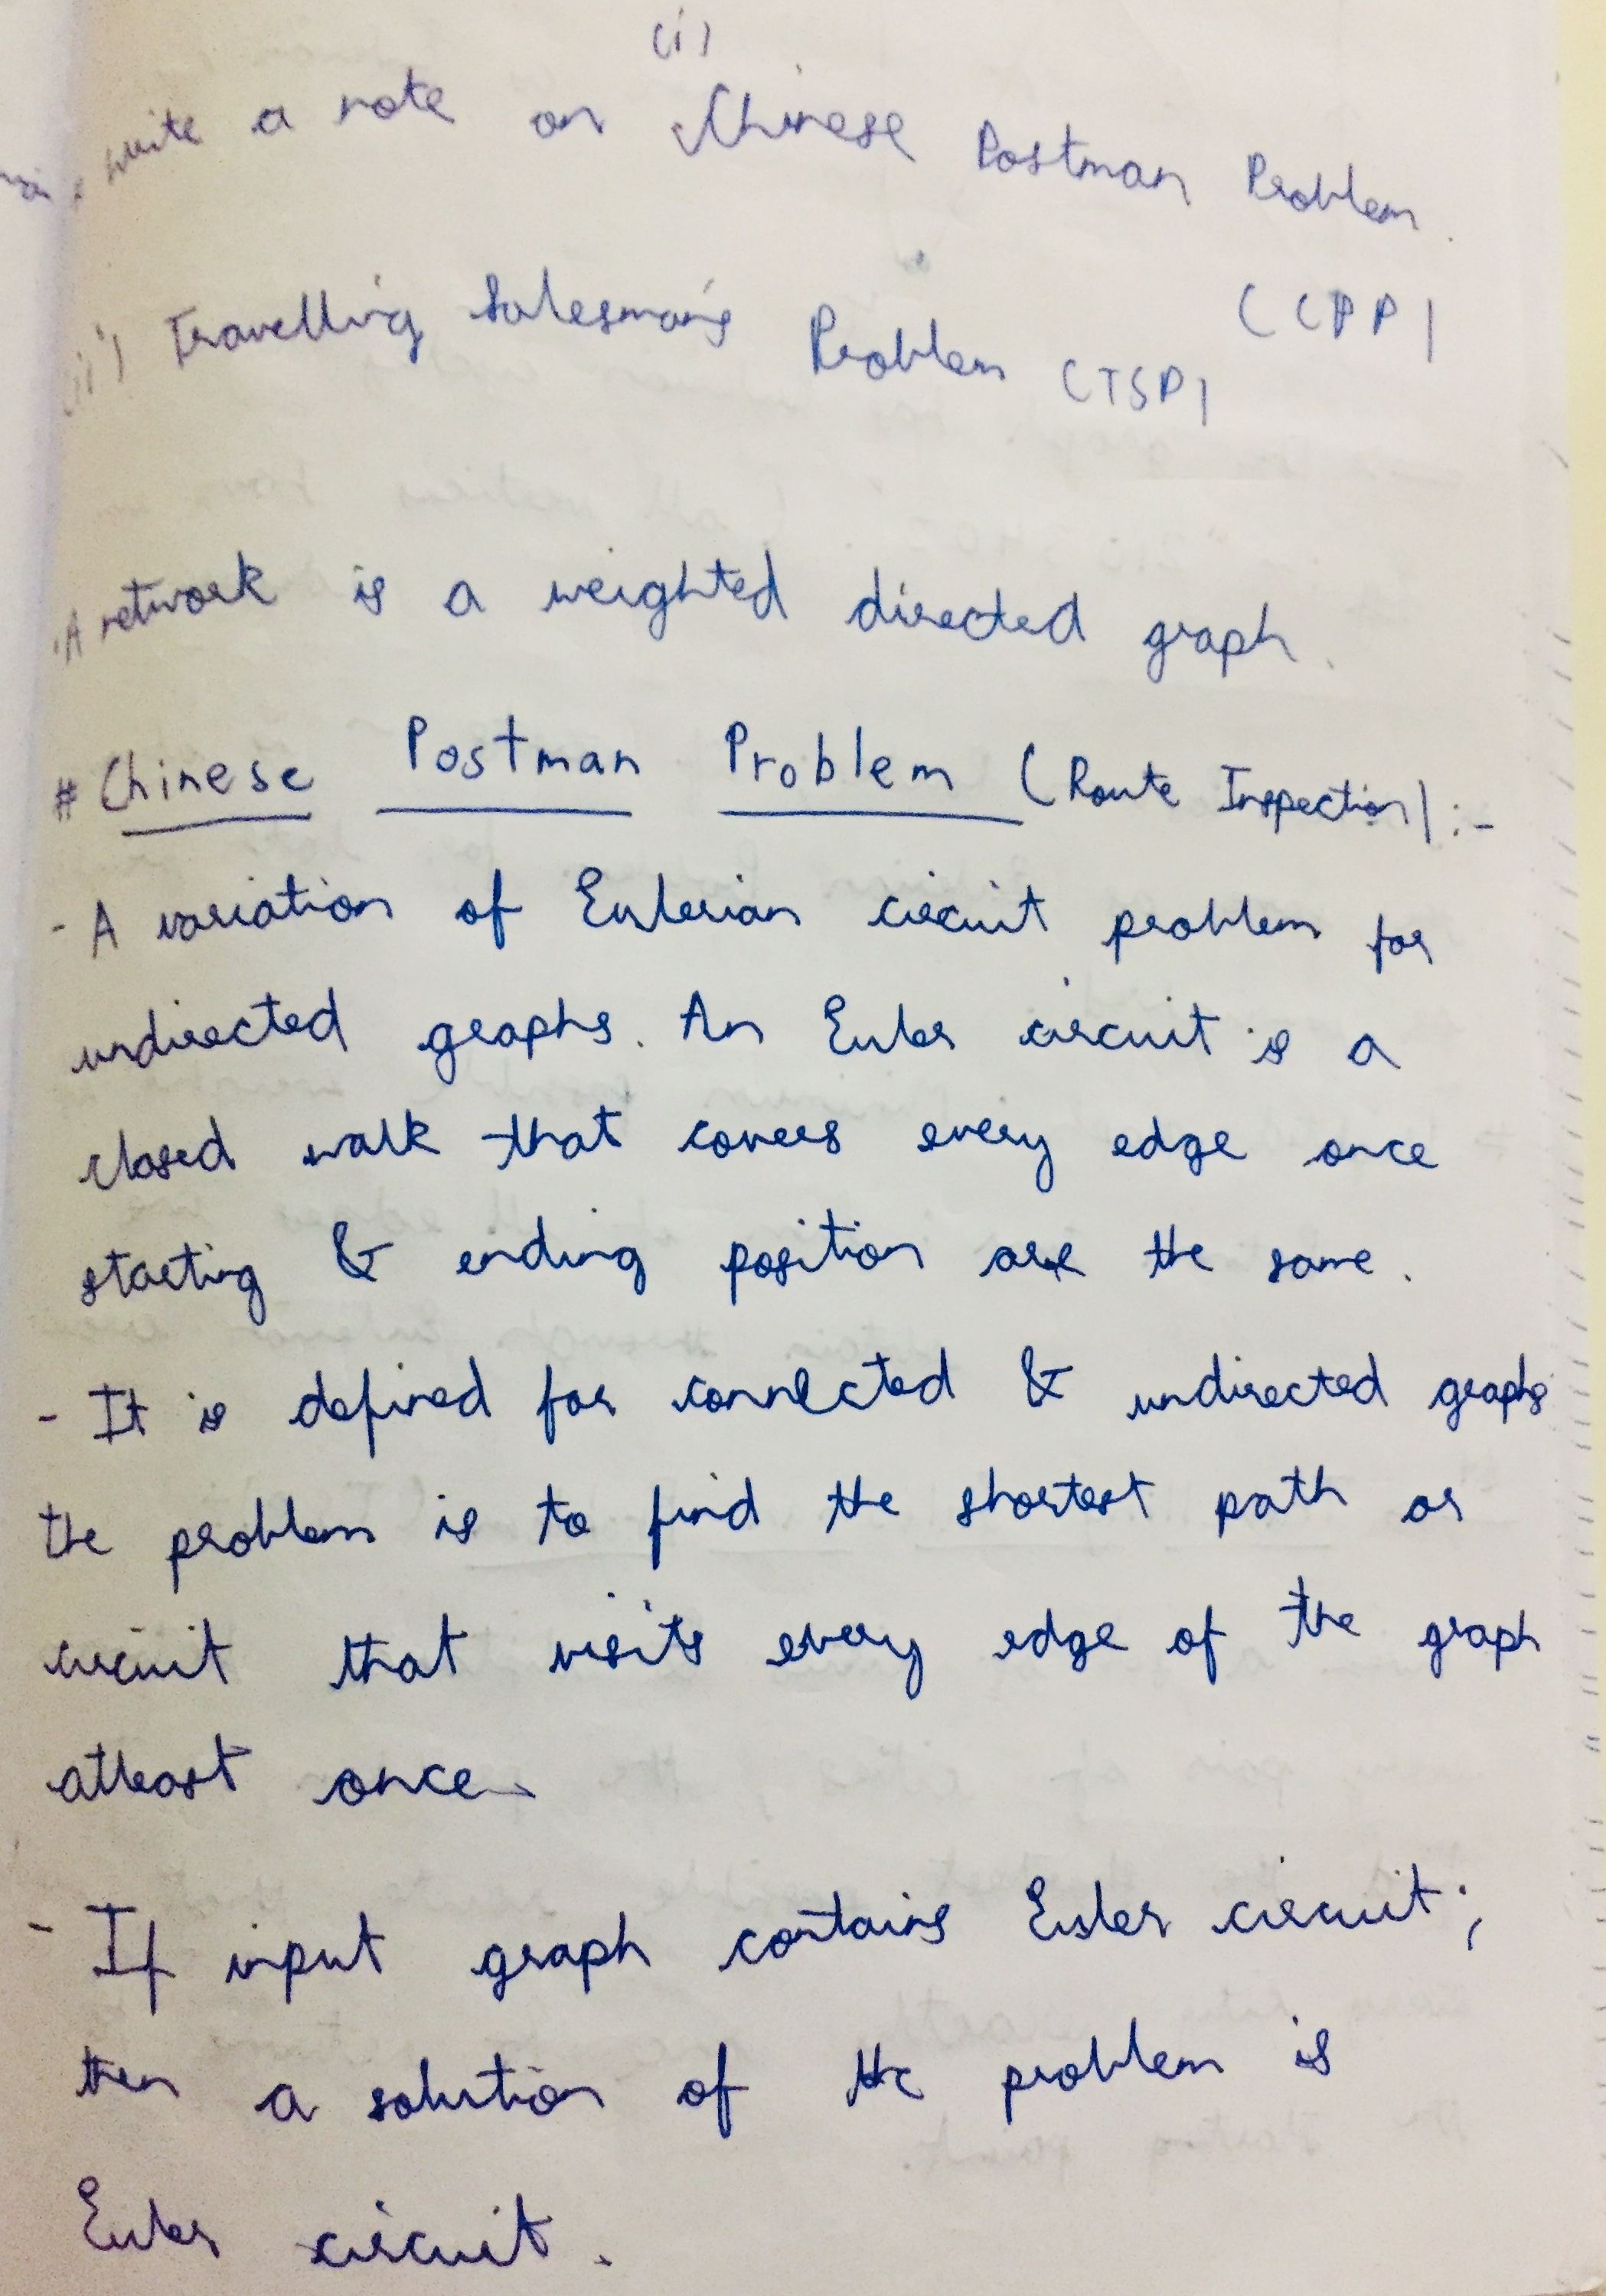 (i)
write a note on Chinese Postman Problem.
(CPP)
(ii) Travelling Salesman's Problem (TSP)
A network is a weighted directed graph.
# Chinese Postman Problem (Route Inspection) :-
- A variation of Eulerian circuit problem for
undirected graphs. An Euler circuit is a
closed walk that covers every edge once
starting & ending position are the same.
- It is defined for connected & undirected graphs
the problem is to find the shortest path or
circuit that visits every edge of the graph
atleast once.
- If input graph contains Euler circuit;
then a solution of the problem is
Euler circuit.